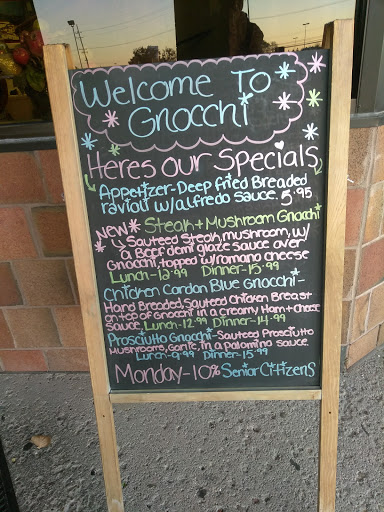 Welcome To
Gnocchi
Heres our Specials
Appetizer-Deep fried Breaded
ravioli w/alfredo sauce. 5.95
NEW* Steak + Mushroom Gnocchi
Sauteed Steak, mushroom, w/
a Beef demi glaze sauce over
Gnocchi, topped w/romano cheese
Lunch-12.99 Dinner-15.99
Chicken Cordon Blue Gnocchi-
Hand Breaded, Sauteed Chicken Breast
on top of Gnocchi in a creamy Ham + Cheese
Sauce, Lunch-12.99 Dinner-14.99
Prosciutto Gnocchi-Sauteed Prosciutto
Mushrooms, Garlic, in a Palomino sauce
Lunch-9.99 Dinner-15.99
Monday-10% Senior Citizens